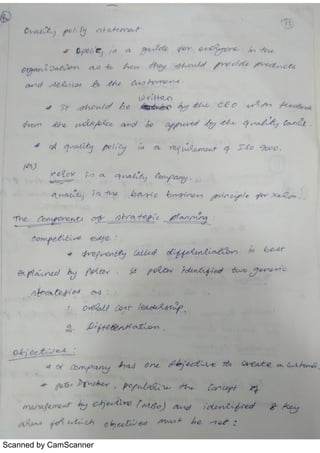 Quality policy statement
* Qpolicy is a guide for everyone in the
organization as to how they should provide products
and services to the customers.
* It should be written by the CEO with feedback
from the workplace and be approved by the quality council.
* A quality policy is a requirement of ISO 9000.
Xerox is a quality company.
quality is the basic business principle for Xerox.
The components of strategic planning
competitive edge:
* frequently called differentiation is best
explained by Porter. porter identified two generic
strategies as:
1. overall cost leadership,
2. Differentiation.
Objectives:
* A company has one objective to create a customer,
* Peter Drucker, the concept of
management by objective (MBO) and identified 8 key
areas for which objectives must be met:
Scanned by CamScanner